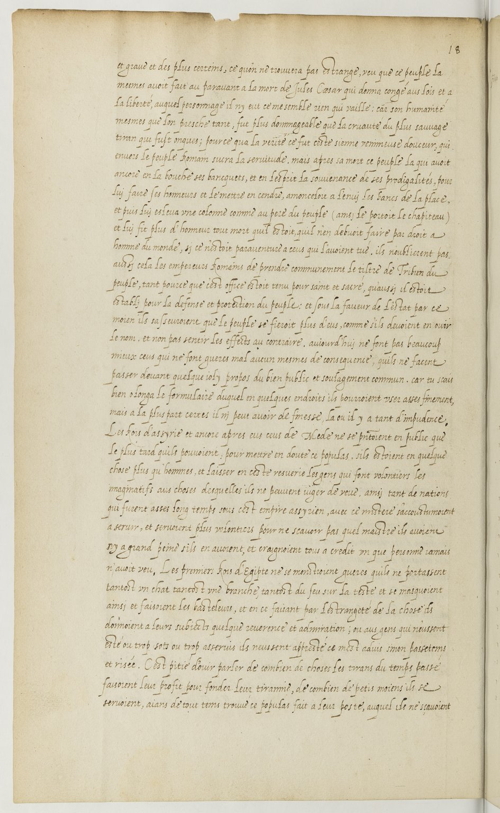 18
et grave et des plus certems, ce quon ne trouvera pas estrange, veu que ce peuple la
mesme avoit fait au paravant a la mort de Jules Cæsar qui donna congé aus lois et a
la liberté, auquel personnage il ny eut ce me semble rien qui vaille: car son humanité
mesmes que lon presche tant, fut plus dommageable que la cruauté du plus sauvage
tiran qui fust onques; pource qua la verité ce fut ceste sienne venimeuse douceur, qui
envers le peuple Romain sucra la servitude. mais apres sa mort ce peuple la qui avoit
ancore en la bouche ses bancquets, et en lesprit la souvenance de ses prodigalités, pour
luy faire ses honneurs et le mettre en cendre, amonceloit a lenuy les bancs de la place,
et puis luy esleva une colonne comme au pere du peuple (ainsi le portoit le chapiteau)
et luy fit plus d honneur tout mort quil estoit, quil nen debvoit faire par droit a
homme du monde, si ce nestoit paraventure a ceus qui lavoient tué. ils noublierent pas
aussi cela les empereurs Romains de prendre communement le tiltre de Tribun du
peuple, tant pource que cest office estoit tenu pour saint et sacré, quaussi il estoit
establi pour la defense et protection du peuple: et sous la faveur de lestat par ce
moien ils sasseuroient que le peuple se fieroit plus deus, comme sils devoient en ouir
le nom, et non pas sentir les effects au contraire. aujourdhuy ne font pas beaucoup
mieux ceus qui ne font gueres mal aucun mesmes de consequence, quils ne facent
passer devant quelque joly propos du bien public et soulagement commun. car tu scais
bien o longa le formulaire duquel en quelques endroits ils pourroient user assez finement,
mais a la pluspart certes il ni peut avoir de finesse, la ou il y a tant d impudence.
Les Rois d assyrie et ancore apres eus ceus de Mede ne se presentoient en public que
le plus tard quils pouvoient, pour mettre en doute ce populas, sils estoient en quelque
chose plus qu hommes, et laisser en ceste resverie les gens qui font volontiers les
imaginatifs aus choses desquelles ils ne peuvent juger de veue. ainsi tant de nations
qui furent asses long temps sous cest empire assyrien, avec ce mistere saccoustumoient
a servir, et servoient plus volontiers pour ne scavoir pas quel maistre ils avoient
ny a grand peine sils en avoient, et craignoient tous a credit un que personne jamais
n avoit veu. Les premiers Rois d Egipte ne se monstroient gueres quils ne portassent
tantost un chat tantost une branche tantost du feu sur la teste et se masquoient
ainsi et faisoient les basteleurs, et en ce faisant par lestrangeté de la chose ils
donnoient a leurs subiects quelque reverence et admiration, ou aus gens qui neussent
esté ou trop sots ou trop asservis ils neussent appresté ce m est advis sinon passetems
et risée. C est pitié d ouir parler de combien de choses les tirans du temps passé
faisoient leur profit pour fonder leur tirannie, de combien de petis moiens ils se
servoient, aians de tout tems trouvé ce populas fait a leur poste, auquel ils ne scavoient